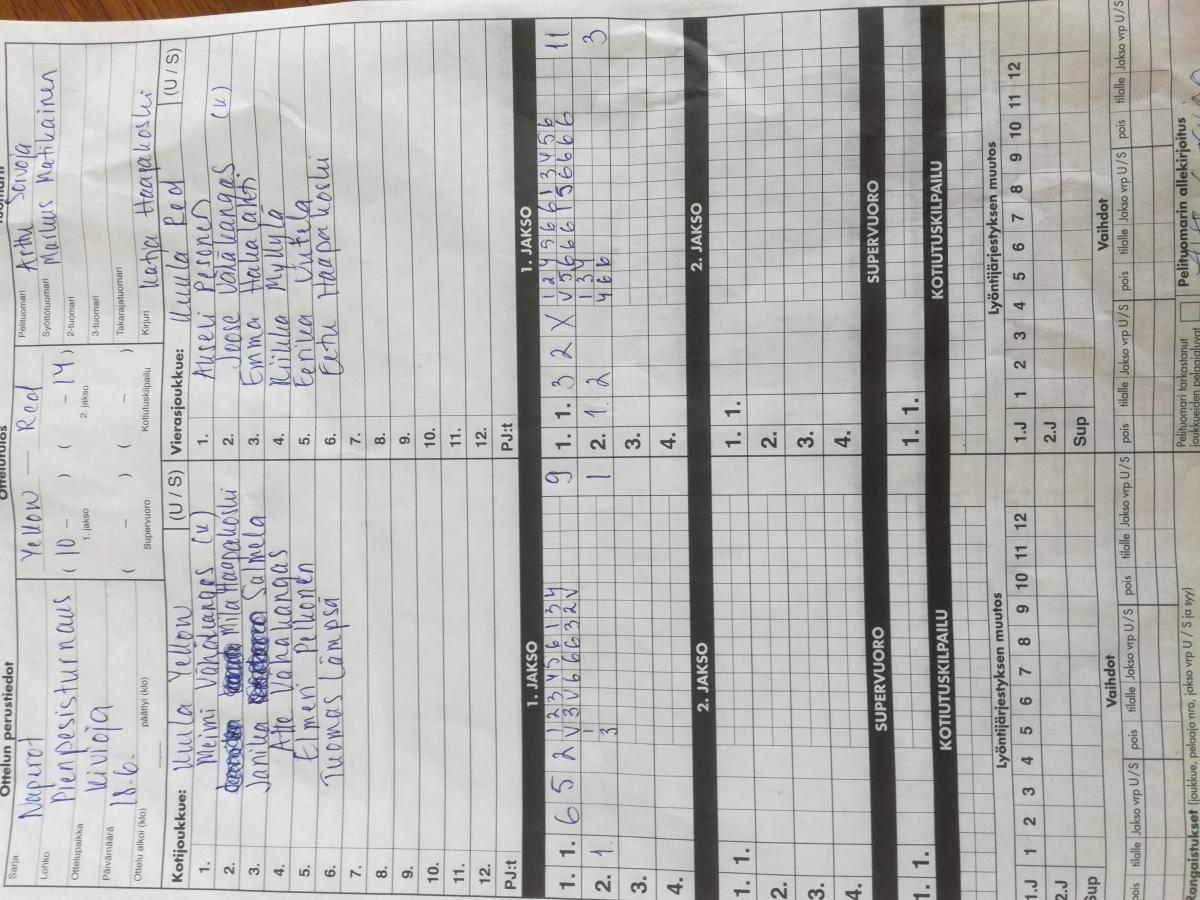 Ottelun perustiedot
Sarja Naperot
Lohko Pienpesisturnaus
Ottelupaikka Kivioja
Päivämäärä 18.6.
Ottelu alkoi (klo) päättyi (klo)
Ottelutulos
Yellow — Red
( 10 – ) ( – 14 )
1. jakso 2. jakso
( – ) ( – )
Supervuoro Kotiutuskilpailu
Pelituomari Arttu Soivoja
Syöttötuomari Markus Matikainen
2-tuomari
3-tuomari
Takarajatuomari
Kirjuri Katja Haapakoski
Kotijoukkue: Kuula Yellow (U / S)
1. Meimi Vähäkangas (K)
2. Mila Haapakoski
3. Janika Salmela
4. Atte Vähäkangas
5. Elmeri Pelkonen
6. Tuomas Lämpsä
7.
8.
9.
10.
11.
12.
PJ:t
Vierasjoukkue: Kuula Red (U / S)
1. Akseli Pesonen
2. Joose Vähäkangas (K)
3. Emma Hakalahti
4. Kiikka Myllylä
5. Eerika Kutela
6. Eetu Haapakoski
7.
8.
9.
10.
11.
12.
PJ:t
1. JAKSO 1. JAKSO
1. 1. 6 5 2 1 2 3 3 4 5 6 1 3 4 9
V 3 V 6 6 6 3 2 V
2. 1. 1 1
3
3.
4.
1. 1. 3 2 X 1 2 4 5 6 6 1 3 4 5 6 11
V 5 6 6 6 1 5 6 6 6 6
2. 1. 2 1 3 4 3
4 6 6
3.
4.
2. JAKSO 2. JAKSO
1. 1. 1. 1.
2. 2.
3. 3.
4. 4.
SUPERVUORO SUPERVUORO
1. 1. 1. 1.
KOTIUTUSKILPAILU KOTIUTUSKILPAILU
Lyöntijärjestyksen muutos Lyöntijärjestyksen muutos
1.J 1 2 3 4 5 6 7 8 9 10 11 12 1.J 1 2 3 4 5 6 7 8 9 10 11 12
2.J 2.J
Sup Sup
Vaihdot Vaihdot
pois tilalle Jakso vrp U/S pois tilalle Jakso vrp U/S pois tilalle Jakso vrp U/S pois tilalle Jakso vrp U/S pois tilalle Jakso vrp U/S pois tilalle Jakso vrp U/S
Rangaistukset (joukkue, pelaaja nro, jakso vrp U / S ja syy)
Pelituomari tarkastanut
joukkueiden pelaajaluvat
Pelituomarin allekirjoitus